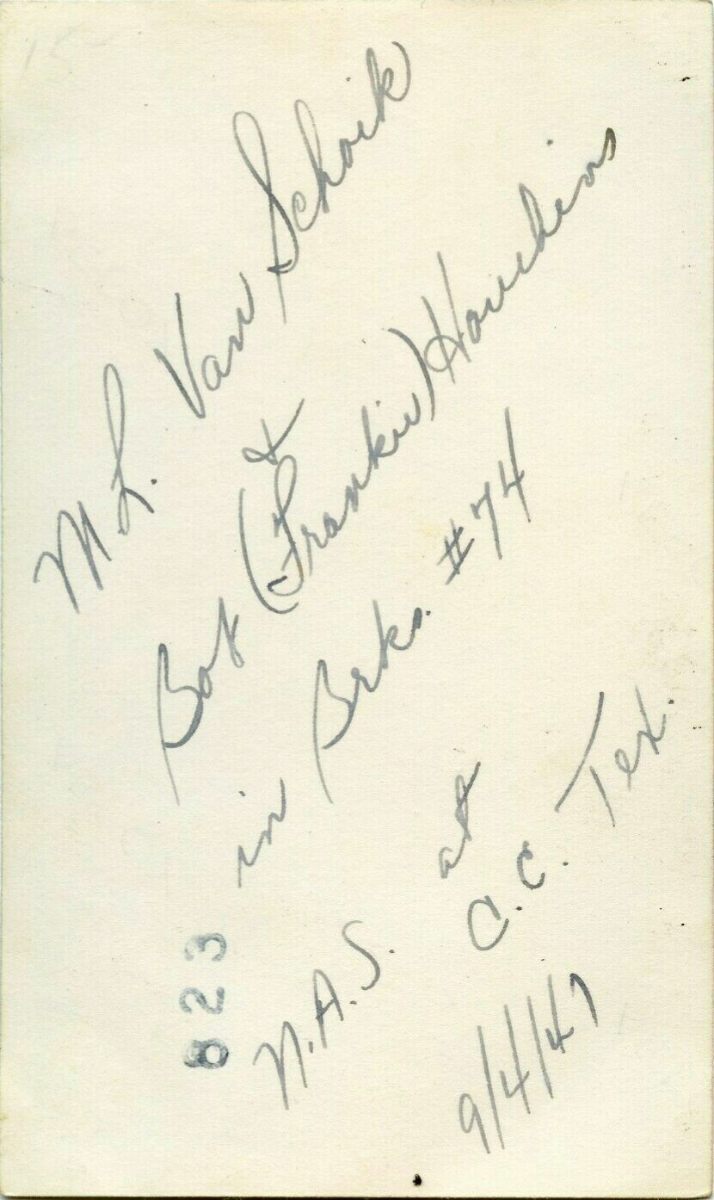 M.L. Van Schoik
&
Bob (Frankie) Houchins
in Brks. #74
N.A.S. at
C.C. Tex.
9/4/47
823
15